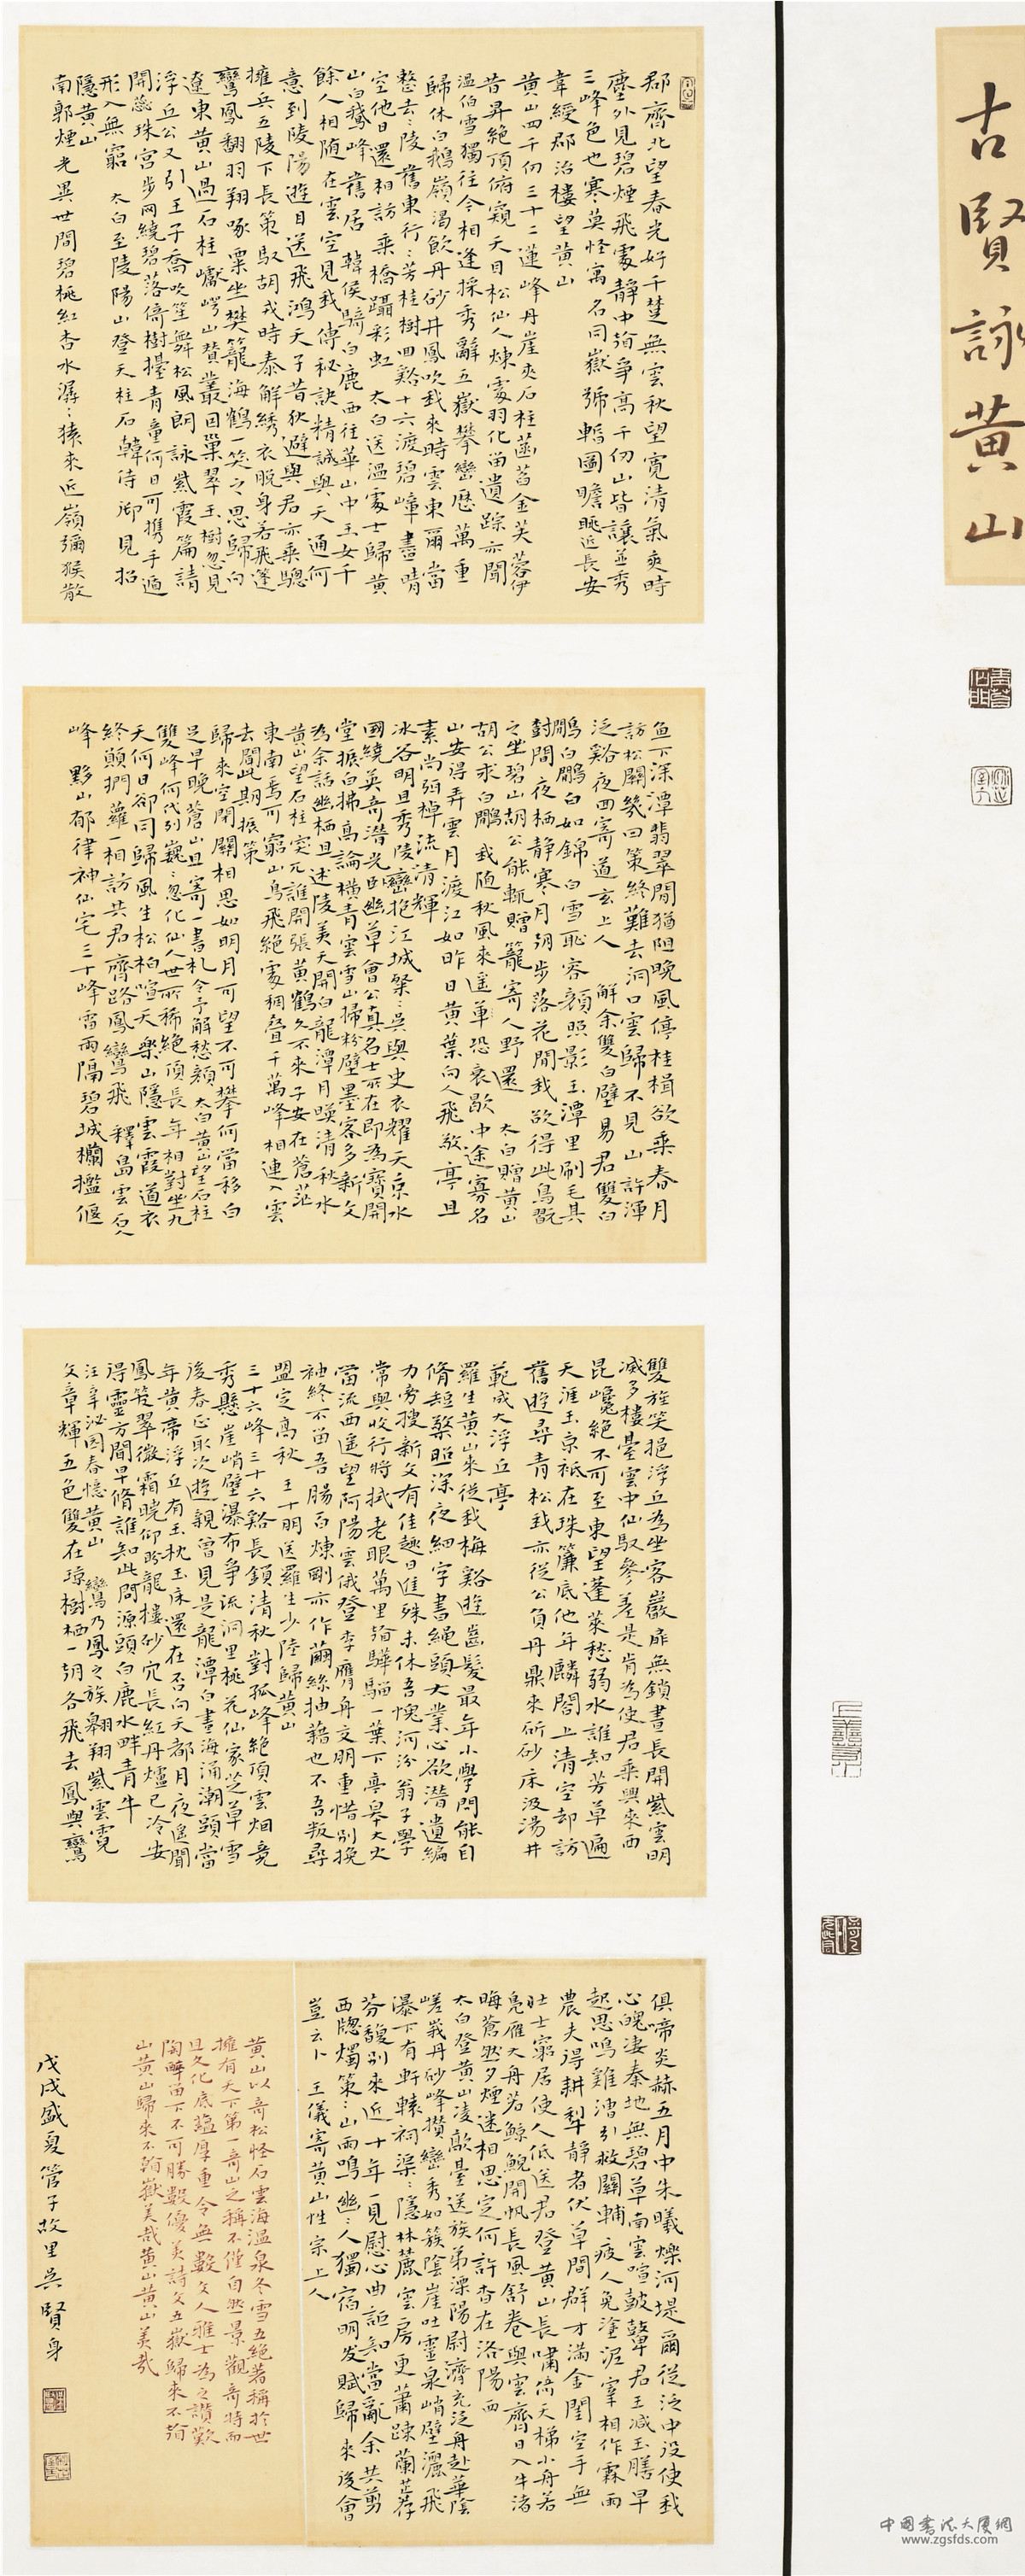 古賢詠黄山
郡齋北望春光好千里無雲秋望寬清氣爽時
塵外見碧煙飛處靜中猶爭高千仞山皆讓並秀
三峰色也寒莫怪寓名同嶽號輶圖瞻眺近長安
韋綬郡治樓望黄山
黄山四千仞三十二蓮峰丹崖夾石柱菡萏金芙蓉伊
昔昇絶頂俯窺天目松仙人煉處羽化留遺踪亦聞
温伯雪獨往今相逢採秀辭五嶽攀巒歷萬重
歸休白鵝嶺渴飲丹砂井鳳吹我來時雲車爾當
整去去陵舊東行行芳桂樹回谿十六渡碧嶂盡晴
空他日還相訪乘橋躡彩虹　太白送温處士歸黄
山白鵝峰舊居　韓侯騎白鹿西往華山中玉女千
餘人相随在雲空見我傳秘訣精誠與天通何
意到陵陽遊目送飛鴻天子昔狄避與君亦乘驄
擁兵五陵下長策馭胡戎時泰解綉衣脱身若飛蓬
鸞鳳翻羽翔啄粟坐樊籠海鶴一笑之思歸向
遼東黄山過石柱巘崿山贊叢因巢翠玉樹忽見
浮丘公又引王子喬吹笙舞松風朗詠紫霞篇請
開蕊珠宫步网繞碧落倚樹擡青童何日可携手遁
形入無窮　太白至陵陽山登天柱石韓侍御見招
隱黄山
南郭煙光異世間碧桃紅杏水潺潺猿來近嶺獼猴散
魚下深潭翡翠閒猶阻晚風停桂楫欲乘春月
訪松關幾回策終難去洞口雲歸不見山許渾
泛谿夜回寄道玄上人　解余雙白璧易君雙白
鷴白鷴白如錦白雪恥容顏照影玉潭里刷毛其
對間夜栖靜寒月朝步落花閒我欲得此鳥翫
之坐碧山胡公能輒贈籠寄人野還　太白贈黄山
胡公求白鷴　我随秋風來遥華恐衰歇中途寡名
山安得弄雲月渡江如昨日黄葉向人飛敬亭且
素尚弭棹流清輝
冰谷明且秀陵巒抱江城粲粲吳與史衣耀天京水
國繞英奇潜光卧幽草會公真名士所在即為寶開
堂振白拂高論横青雲雪山掃粉壁墨客多新文
為余話幽栖且述陵美天開白龍潭月暎清秋水
黄山望石柱突兀誰開張黄鶴久不來子安在蒼茫
東南焉可窮山鳥飛絶處稠疊千萬峰相連入雲
去聞此期振策
歸來空閉關相思如明月可望不可攀何當移白
足早晚蒼山且寄一書札令予解愁顏　太白黄山望石柱
雙峰何代列巍巍忽化仙人世所稀絶頂長年相對坐九
天何日卻同歸風生松柏喧天樂山隱雲霞道衣
終願捫蘿一相訪共君齊路鳳鸞飛　釋島雲石人
峰　黟山郁律神仙宅三十峰雷雨隔碧城欄檻偃
雙旌笑挹浮丘為坐客巖扉無鎖晝長開紫雲明
滅多樓臺雲中仙馭參差是肯為使君乘興來西
昆巉絶不可至東望蓬萊愁弱水誰知芳草遍
天涯玉京衹在珠簾底他年麟閣上清空却訪
舊遊尋青松我亦從公負丹鼎來斫砂床汲湯井
範成大浮丘亭
羅生黄山來從我梅谿遊齒髮最年小學問能自
脩短檠照深夜細字書蠅頭大業心欲潜遺編
力旁搜新文有佳趣日進殊未休吾愧河汾翁子學
常與收行將拭老眼萬里獨驊騮一葉下亭皋大火
當流西遥望阿陽雲俄登李膺舟文明重惜别挽
袖終不留吾腸百煉剛亦作繭絲抽藉也不吾叛尋
盟定高秋　王十朋送羅生少陸歸黄山
三十六峰三十六谿長鎖清秋對孤峰絶頂雲烟竞
秀懸崖峭壁瀑布爭流洞里桃花仙家芝草雪
後春正取次遊親曾見是龍潭白晝海涌潮頭當
年黄帝浮丘有玉枕玉床還在否向天都月夜遥聞
鳳管翠微霜曉仰盼龍樓砂穴長紅丹爐已冷安
得靈方聞早脩誰知此問源頭白鹿水畔青牛
汪莘沁園春憶黄山　鸞乃鳳之族翱翔紫雲霓
文章輝五色雙在瓊樹栖一朝各飛去鳳與鸞
俱啼炎赫五月中朱曦爍河堤爾從泛中没使我
心魄淒秦地無碧草南雲喧鼓鼙君王减玉膳早
起思鳴雞漕引救關輔疲人免塗泥宰相作霖雨
農夫得耕犁靜者伏草間群才滿金閨空手無
壯士窮居使人低送君登黄山長嘯倚天梯小舟若
鳧雁大舟若鯨鯢開帆長風舒卷與雲齊日入牛渚
晦蒼然夕煙迷相思定何許杳在洛陽西
太白登黄山凌歊臺送族弟溧陽尉濟充泛舟赴華陰
嵯峩丹砂峰攢巒秀如簇陰崖吐靈泉峭壁灑飛
瀑下有軒轅祠渠渠隱林麓雲房更蕭踈蘭芷荐
芬馥别來近十年一見慰心曲詎知當亂余共剪
西牕燭策策山雨鳴幽幽人獨宿明发賦歸來後會
豈云卜　王儀寄黄山性宗上人
黄山以奇松怪石雲海温泉冬雪五絶著稱於世
擁有天下第一奇山之稱不僅自然景觀奇特而
且文化底蕴厚重令無數文人雅士為之讃歎
陶醉留下不可勝數優美詩文五嶽歸來不看
山黄山歸來不看嶽美哉黄山黄山美哉
戊戌盛夏管子故里吳賢身
中國書法大厦網
www.zgsfds.com